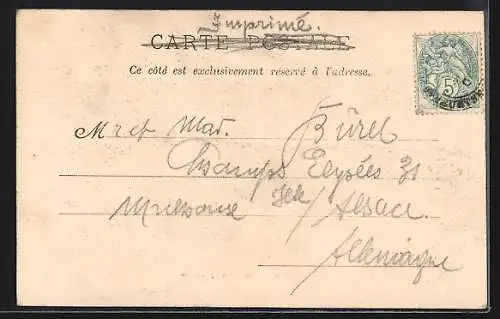 Imprimé.
CARTE POSTALE
Ce côté est exclusivement réservé à l'adresse.
5
M r et Mad. Bürel
Champs Elysées 31
Mulhouse / Alsace.
Allemagne